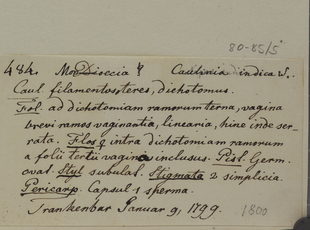 80-85/5
484. Mo Dioecia ☿ Caulinia indica W.
Caul. filamentosoteres, dichotomus.
Fol. ad dichotomiam ramorum terna, vagina
brevi ramos vaginantia, linearia, hinc inde ser-
rata. Flos ♀ intra dichotomiam ramorum
a folii tertii vagina inclusus. Pist. Germ.
ovat. Styl subulat. Stigmata 2 simplicia.
Pericarp. Capsul. 1 sperma.
Trankenbar Januar 9, 1799. 1800